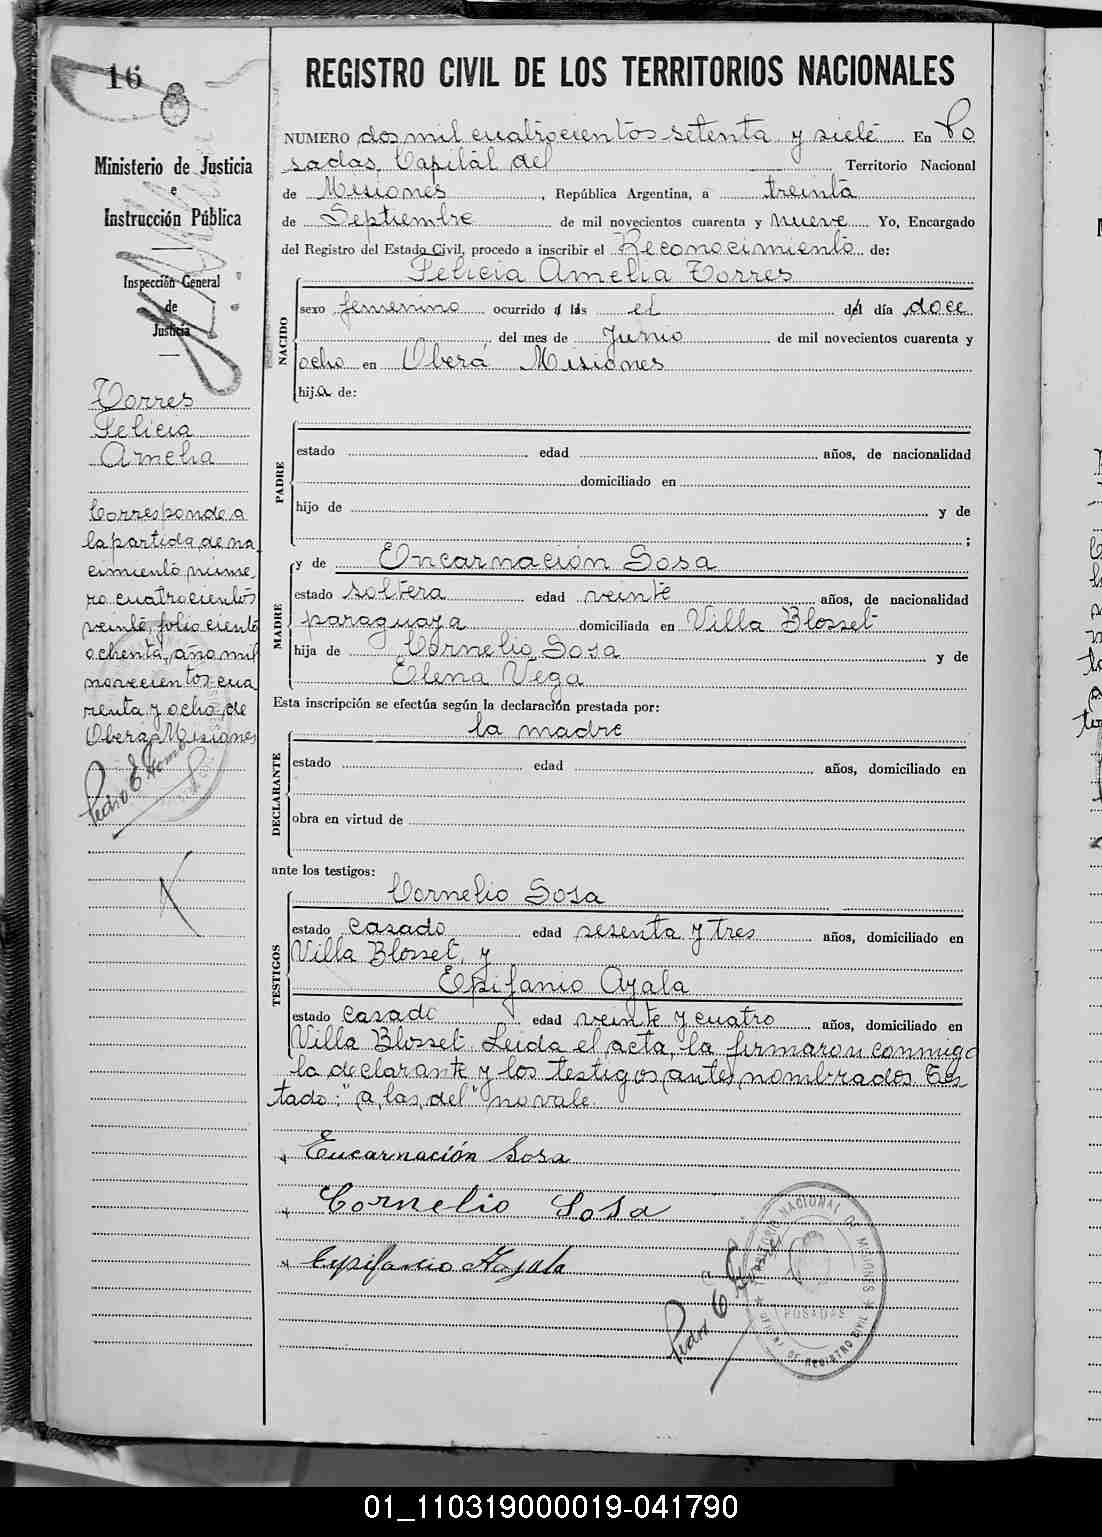 16
Ministerio de Justicia
e
Instrucción Pública
Inspección General
de
Justicia
Torres
Felicia
Amelia
Corresponde a
la partida de na
cimiento núme
ro cuatrocientos
veinte, folio ciento
ochenta, año mil
novecientos cua
renta y ocho, de
Oberá, Misiones
Pedro E
REGISTRO CIVIL DE LOS TERRITORIOS NACIONALES
NUMERO dos mil cuatrocientos setenta y siete En Po
sadas, Capital del Territorio Nacional
de Misiones, República Argentina, a treinta
de Septiembre de mil novecientos cuarenta y nueve Yo, Encargado
del Registro del Estado Civil, procedo a inscribir el Reconocimiento de:
Felicia Amelia Torres
NACIDO
sexo femenino ocurrido a las el del día doce
del mes de Junio de mil novecientos cuarenta y
ocho en Oberá Misiones
hija de:
PADRE
estado edad años, de nacionalidad
domiciliado en
hijo de y de
;
MADRE
y de Encarnación Sosa
estado soltera edad veinte años, de nacionalidad
paraguaya domiciliada en Villa Blosset
hija de Cornelio Sosa y de
Elena Vega
Esta inscripción se efectúa según la declaración prestada por:
la madre
DECLARANTE
estado edad años, domiciliado en
obra en virtud de
ante los testigos:
TESTIGOS
Cornelio Sosa
estado casado edad sesenta y tres años, domiciliado en
Villa Blosset, y
Epifanio Ayala
estado casado edad veinte y cuatro años, domiciliado en
Villa Blosset. Leida el acta, la firmaron conmigo
la declarante y los testigos antes nombrados. Tes
tado: "a, las, del" no vale.
Encarnación Sosa
Cornelio Sosa
Epifanio Ayala
Pedro E
TERRITORIO NACIONAL DE MISIONES
POSADAS
REGISTRO CIVIL
01_110319000019-041790